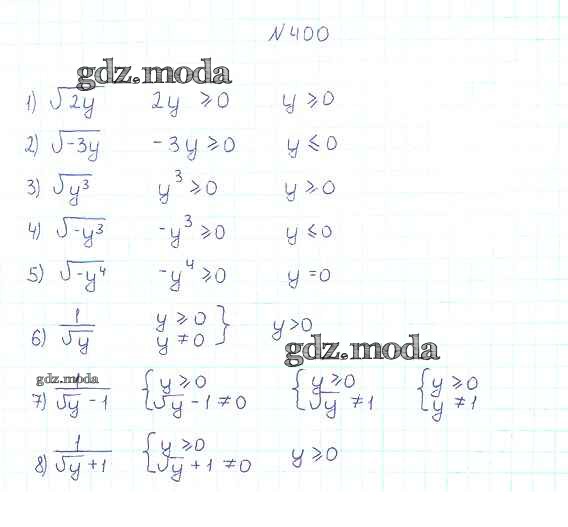 N400
gdz.moda
1) √2y 2y ≥0 y ≥0
2) √-3y -3y ≥0 y ≤0
3) √y³ y³ ≥0 y ≥0
4) √-y³ -y³ ≥0 y ≤0
5) √-y⁴ -y⁴ ≥0 y =0
6) 1/√y { y ≥0 y ≠0 } y>0
gdz.moda
gdz.moda
7) 1/√y -1 { y ≥0 √y -1 ≠0 { y ≥0 √y ≠1 { y ≥0 y ≠1
8) 1/√y +1 { y ≥0 √y +1 ≠0 y ≥0